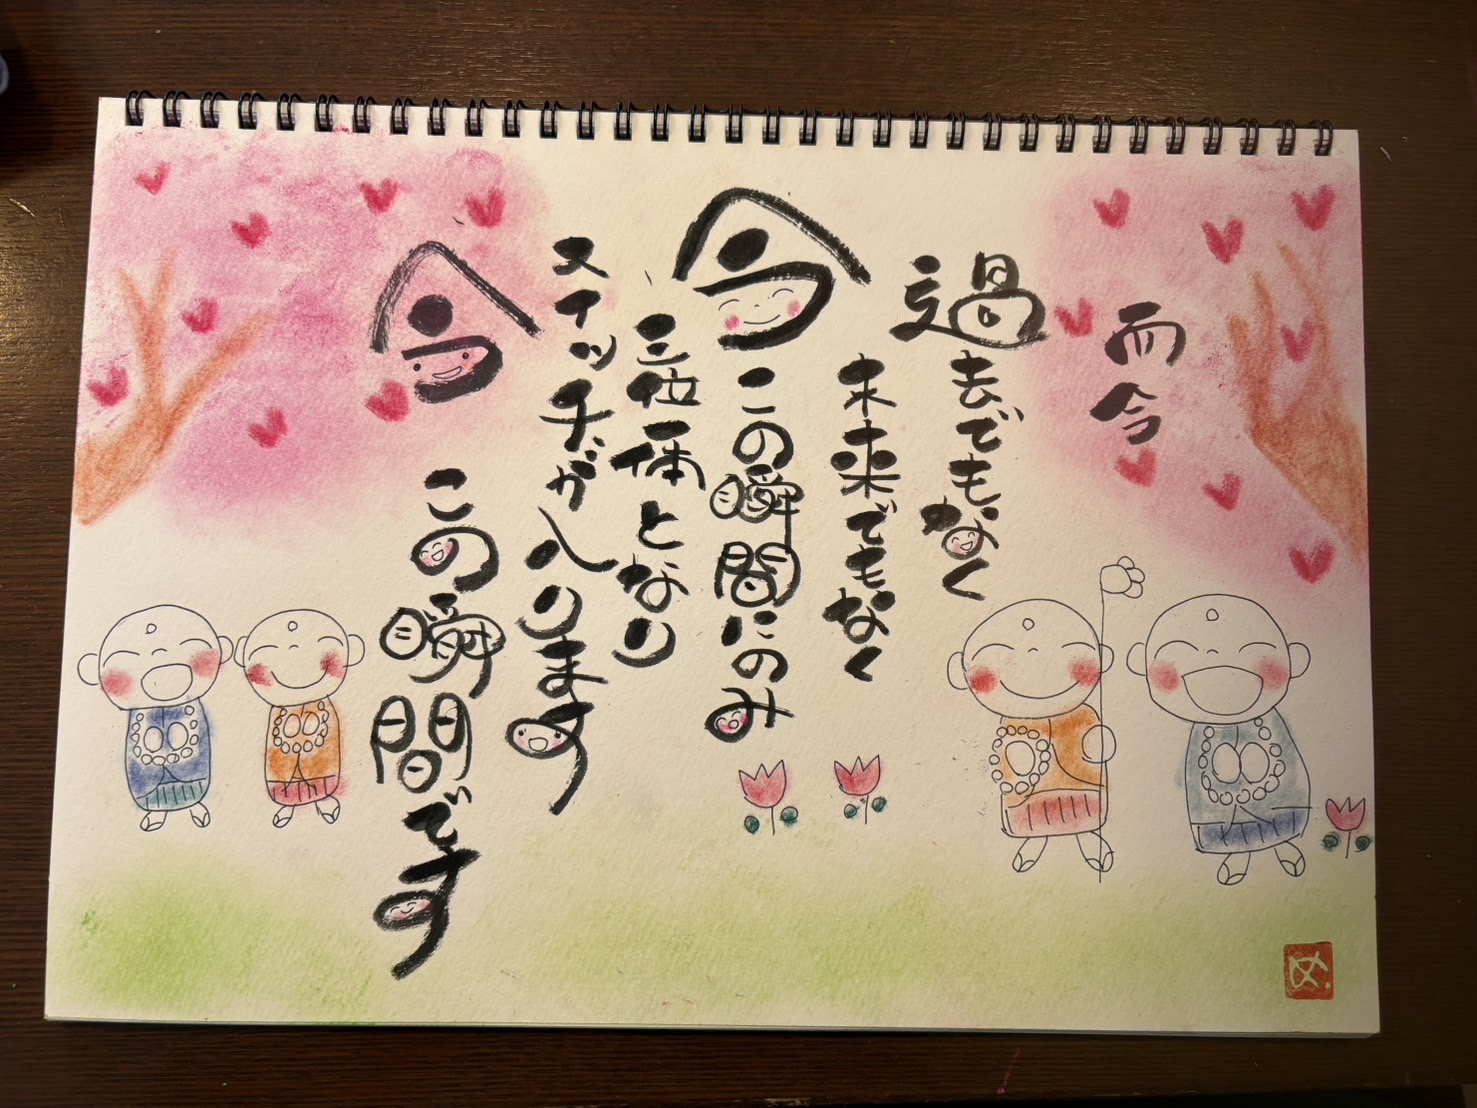 而今
過去でもなく
未来でもなく
今この瞬間にのみ
三位一体となり
スイッチが入ります
今この瞬間です